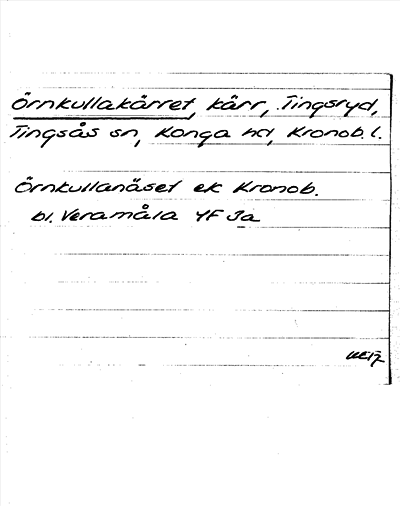 Örnkullakärret, kärr, Tingsryd,
Tingsås sn, Konga hd, Kronob. l.
Örnkullanäset ek Kronob.
bl. Veramåla 4F Ja